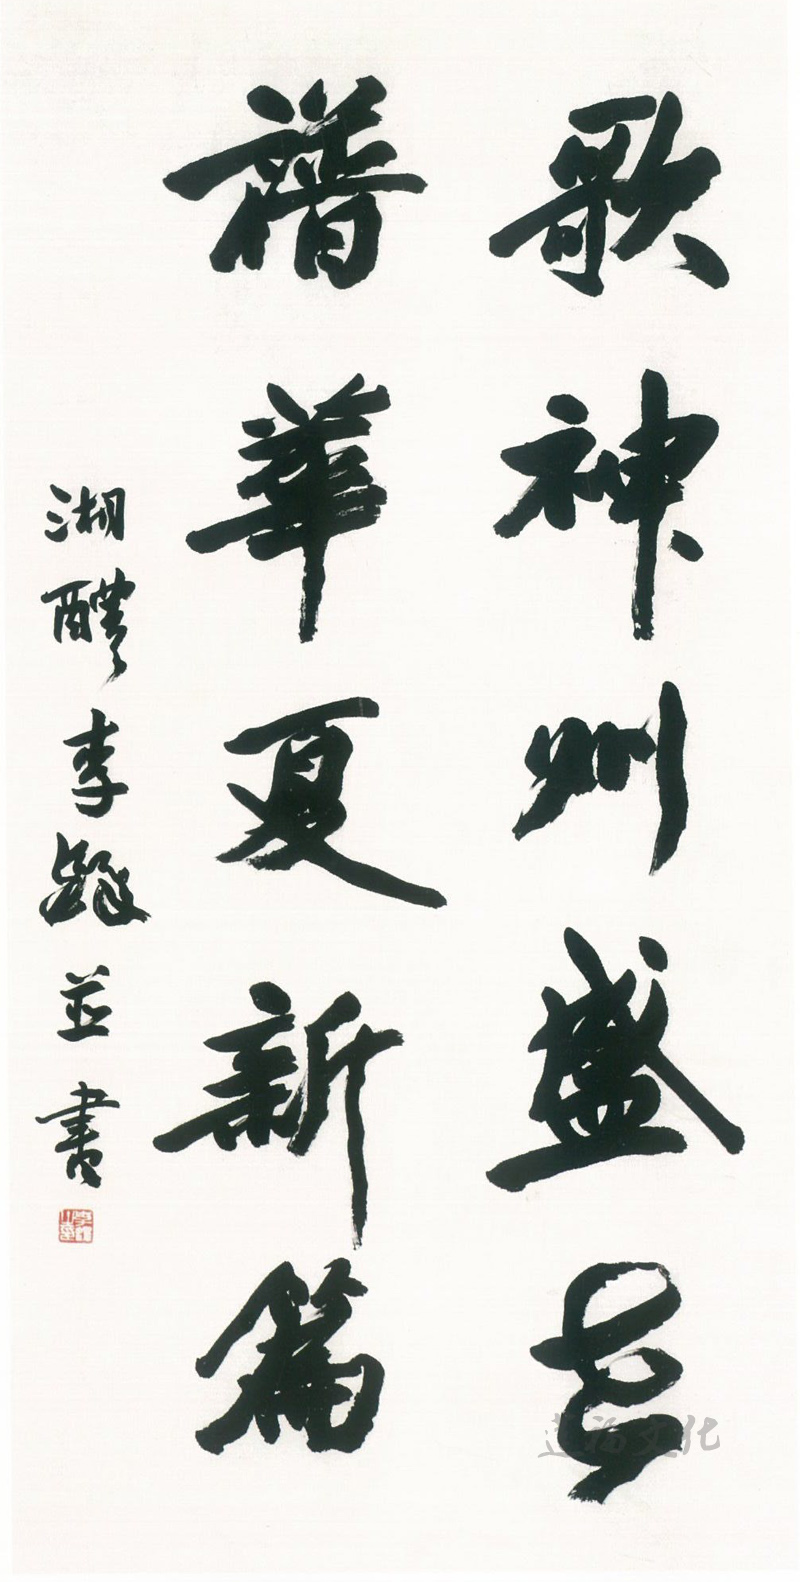 歌神州盛
譜華夏新篇
湘醴李鐸並書
福文化